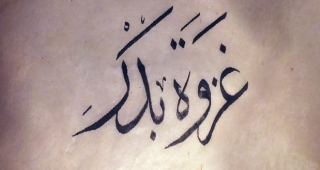 غزوة بدر